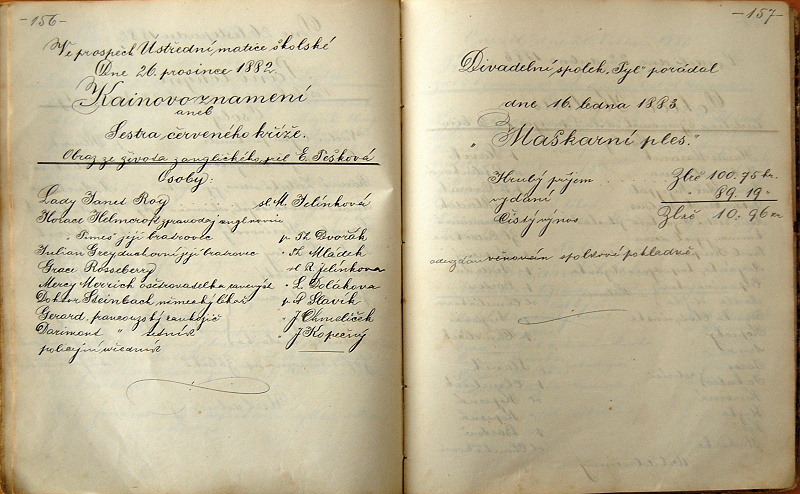 -156-
Ve prospěch Ústřední matice školské
Dne 26. prosince 1882
Kainovo znamení
aneb
Sestra červeného kříže.
Obraz ze života anglického, od E. Pešková
Osoby:
Lady Janet Roy sl M. Jelínková
Horace Helmcroft, zpravodaj angl. novin
"Times" její bratrovec p. Th Dvořák
Julian Grey, duchovní její bratrovec " Th. Mládek
Grace Rosseberry sl R. Jelínkova
Mercy Merrick ošetřovatelka " L. Dolákova
Doktor Steinbach, německý lékař p. P. Slavík
Gerard, francouzský " J Chmelíček
Darimont " setník " J Kopečný
policejní úředník
-157-
Divadelní spolek "Tyl" pořádal
dne 16. ledna 1883
"Maškarní ples."
Hrubý příjem Zlté 100.75 kr.
vydání " 89.19 "
Čistý výnos Zlté 10.96 kr
věnován spolkové pokladně.